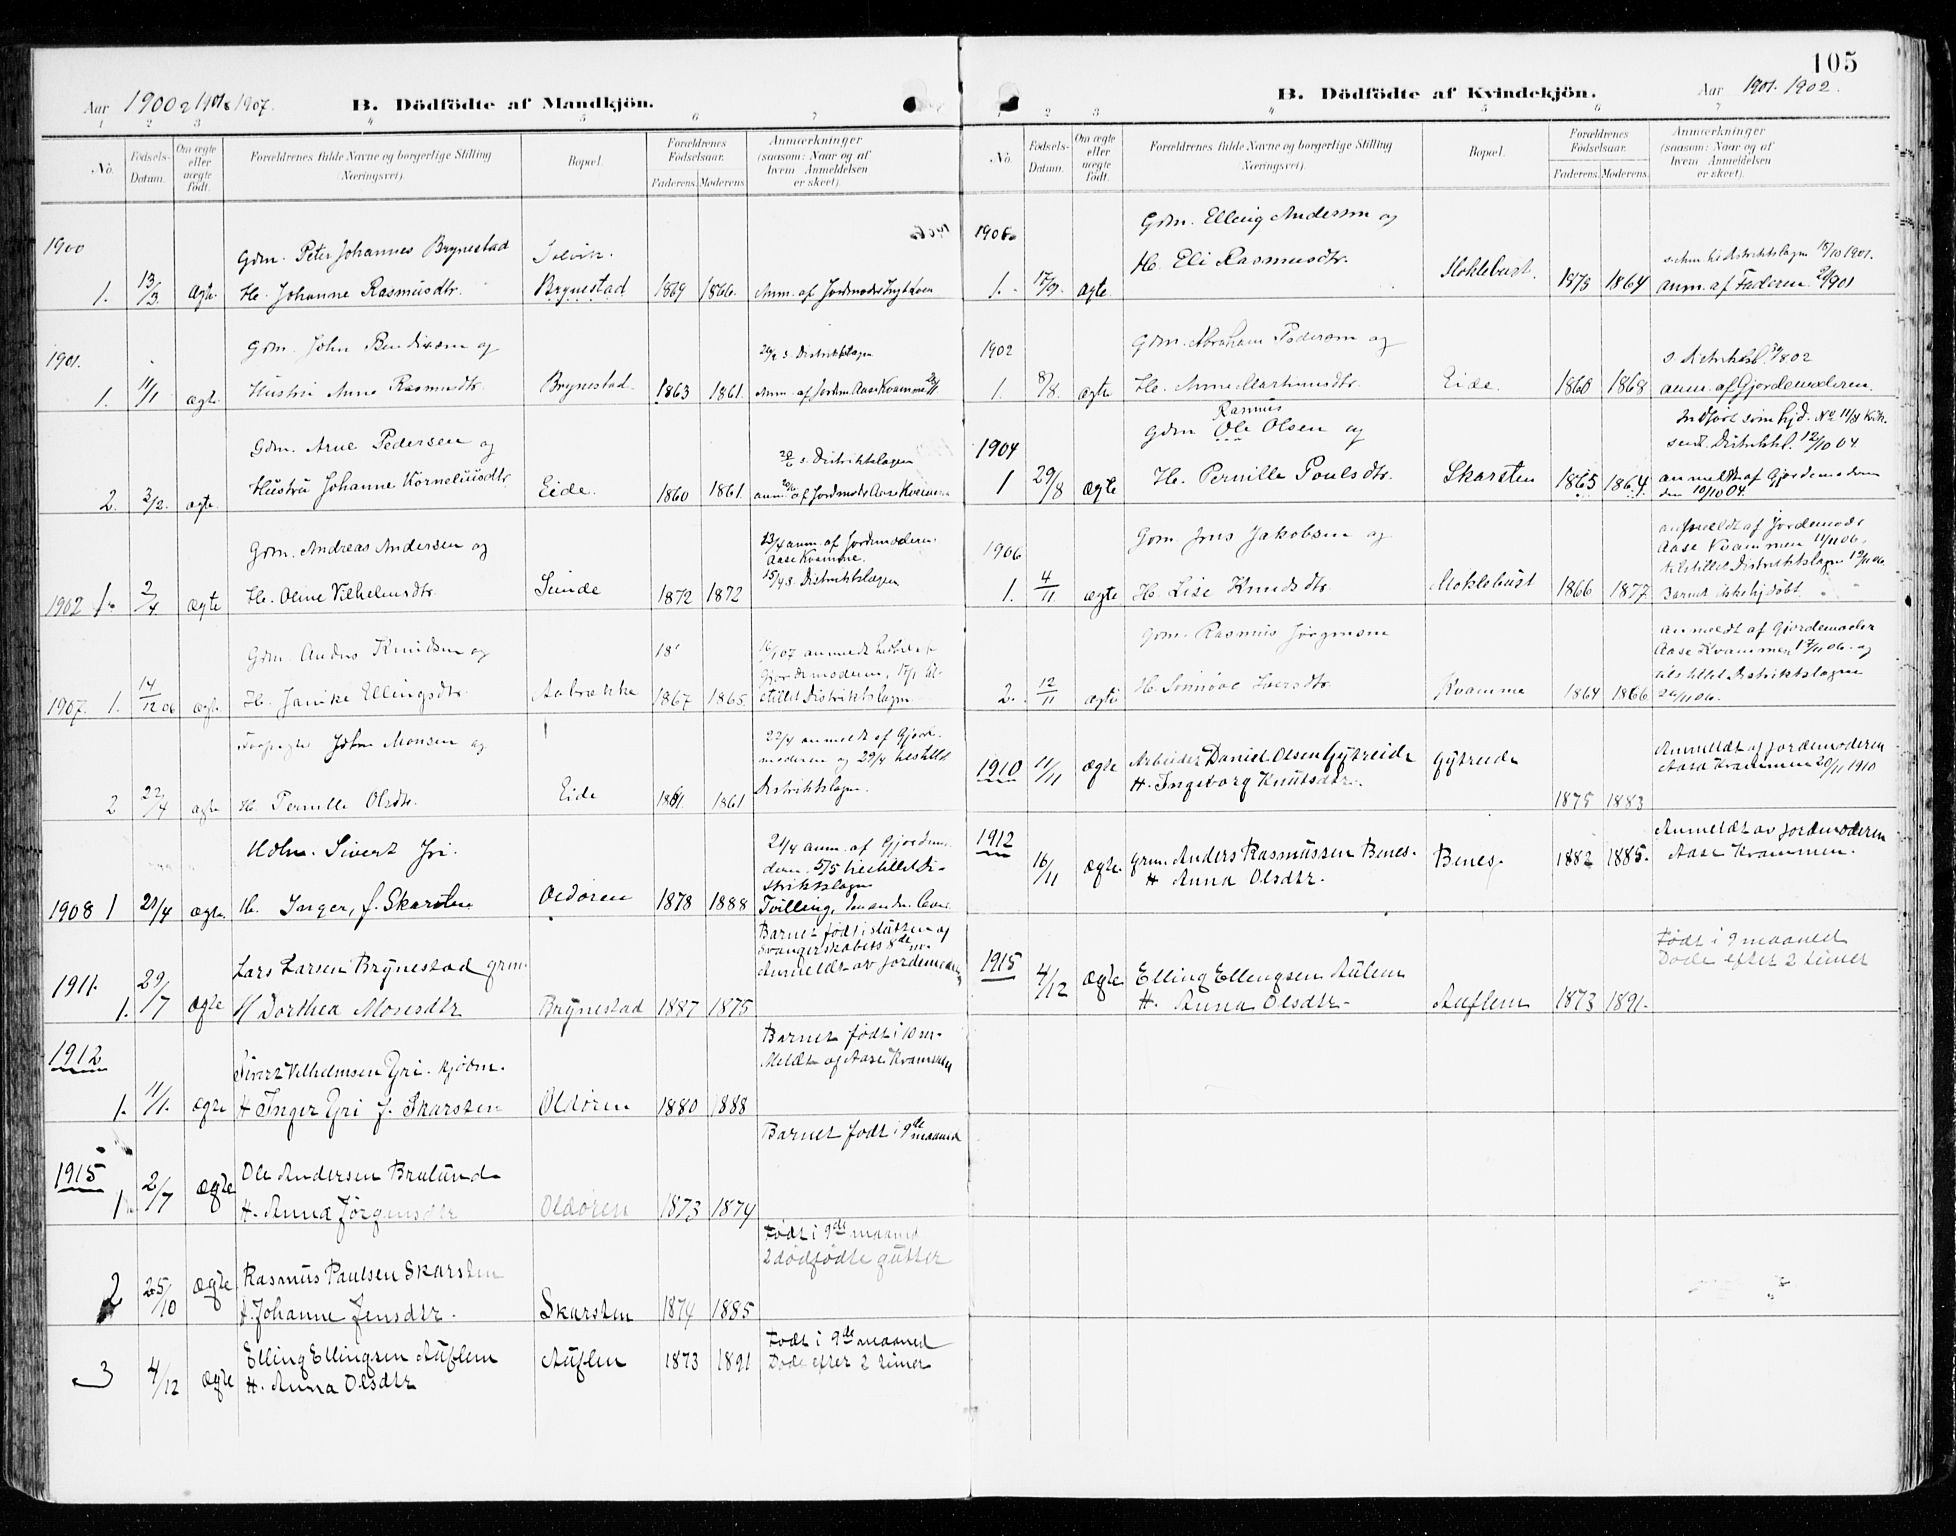 105
Aar 1900 1901 1907.
B. Dödfödte af Mandkjön.
1 2 3 4 5 6 7
No.
Födsels-Datum.
Om ægte eller uægte födt.
Forældrenes fulde Navne og borgerlige Stilling (Næringsvei).
Bopæl.
Forældrenes Födselsaar.
Faderens. Moderens.
Anmærkninger (saasom: Naar og af hvem Anmeldelsen er skeet).
1900
Gdm. Peter Johannes Brynestad
1. 13/3 ægte H. Johanne Rasmusdtr. Brynestad 1869 1866. Anm. af Jordmoder
1901.
Gdm. John Bendixsen og
s. Distriktslægen
1. 11/1 ægte Hustru Anne Rasmusdtr. Brynestad. 1863 1861. Anm. af Jordm. Aase Kvamme
Gdm. Arne Pedersen og
s. Distriktslægen
2. 3/2. ægte Hustru Johanne Korneliusdtr. Eide. 1860 1861. anm. af Jordmoder Aase Kvamme
Gdm. Andreas Andersen og
13/4 anm. af Jordemoderen
Aase Kvamme.
15/4 s. Distriktslægen
1902 1. 2/4 ægte H. Oline Vilhelmsdtr. Sunde 1872 1872
Gdm. Anders Knudsen og
16/1 07 anmeldt
Gjordemoderen, 17/1 til-
stillet Distriktslægen
1907. 1. 14/12 06 ægte H. Janike Ellingsdtr. Aabrække 1867 1865.
John Monsen og
22/4 anmeldt af Gjord-
moderen og 29/4 tilstillet
Distriktslægen.
2 22/4 ægte H. Pernille Olsdtr. Eide 1861 1861
Sivert Yri.
24/4 anm. af Gjordem.
deren. 5/5 tilstillet Di-
striktslægen
1908 1 21/4 ægte. H. Inger, f. Skarsten Oldören 1878 1888 Tvilling, den andre lever.
Barnet födt i slutten af
svangerskabets 8de m.
Anmeldt av jordemoderen
Lars Larsen Brynestad grm.
1911. 1. 29/7 ægte H Dorthea Monsdtr Brynestad 1887 1875
1912
Barnet födt i 10 m.
Meldt af Aase Kvammen
Sivert Vilhelmsen Yri.
1. 11/1. ægte H Inger Yri f. Skarsten Oldören 1880 1888
Barnet födt i 9de maaned
1915
Ole Andersen Brulund
1. 2/7 ægte H. Anna Jørgensdtr Oldören 1873 1874
Födt i 9de maaned
2 dödfödte gutter
2 25/10 ægte Rasmus Paulsen Skarsten
H. Johanne Jensdtr. Skarsten 1874 1885
Födt i 9de maaned
Döde efter 2 timer
3 4/12 ægte Elling Ellingsen Auflem Auflem 1873 1891
H. Anna Olsdtr
B. Dödfödte af Kvindekjön.
Aar 1901. 1902.
1 2 3 4 5 6 7
No.
Födsels-Datum.
Om ægte eller uægte födt.
Forældrenes fulde Navne og borgerlige Stilling (Næringsvei).
Bopæl.
Forældrenes Födselsaar.
Faderens. Moderens.
Anmærkninger (saasom: Naar og af hvem Anmeldelsen er skeet).
Gdm. Elling Andersen og
1. 17/9. ægte H. Eli Rasmusdtr. Moklebust. 1873 1864 anm. af Faderen
1902
Gdm. Abraham Pedersen og
1. 8/8. ægte H. Anne Markusdtr. Eide. 1860 1868 anm. af Gjordemoderen.
1904
Rasmus
Gdm Ole Olsen og
send. Distriktsl. 12/10 04
1 29/8 ægte H. Pernille Poulsdtr. Skarsten 1865 1864. anmeldt af Gjordemoderen
den 10/10 04.
1906
Gdm. Jens Jakobsen og
anmeldt af Jordemoder
Aase Kvammen 11/11 06,
tilstillet Distriktslægen 19/11 06
1. 4/11 ægte H. Lise Knudsdtr. Moklebust 1866 1877 Barnet ikke hjdöbt.
Gdm. Rasmus Jörgensen
anmeldt af Gjordemoder
Aase Kvammen 17/11 06. og
tilstillet Distriktslægen
20/11 06.
2. 12/11 ægte H. Synnöve Iversdtr. Kvamme 1864 1866
1910 11/11 ægte Arbeider Daniel Olsen Gytreide Gytreide
H. Ingeborg Knutsdtr. 1875 1883
Anmeldt af jordemoderen
Aase Kvammen 20/11 1910
1912 16/11 ægte. grm. Anders Rasmussen Benes. Benes. 1882 1885.
H Anna Olsdtr.
Anmeldt av jordemoderen
Aase Kvammen.
1915 4/12 ægte Elling Ellengsen Aulem
H. Anna Olsdtr. Auflem 1873 1891.
Födt i 9 maaned
Döde efter 2 timer